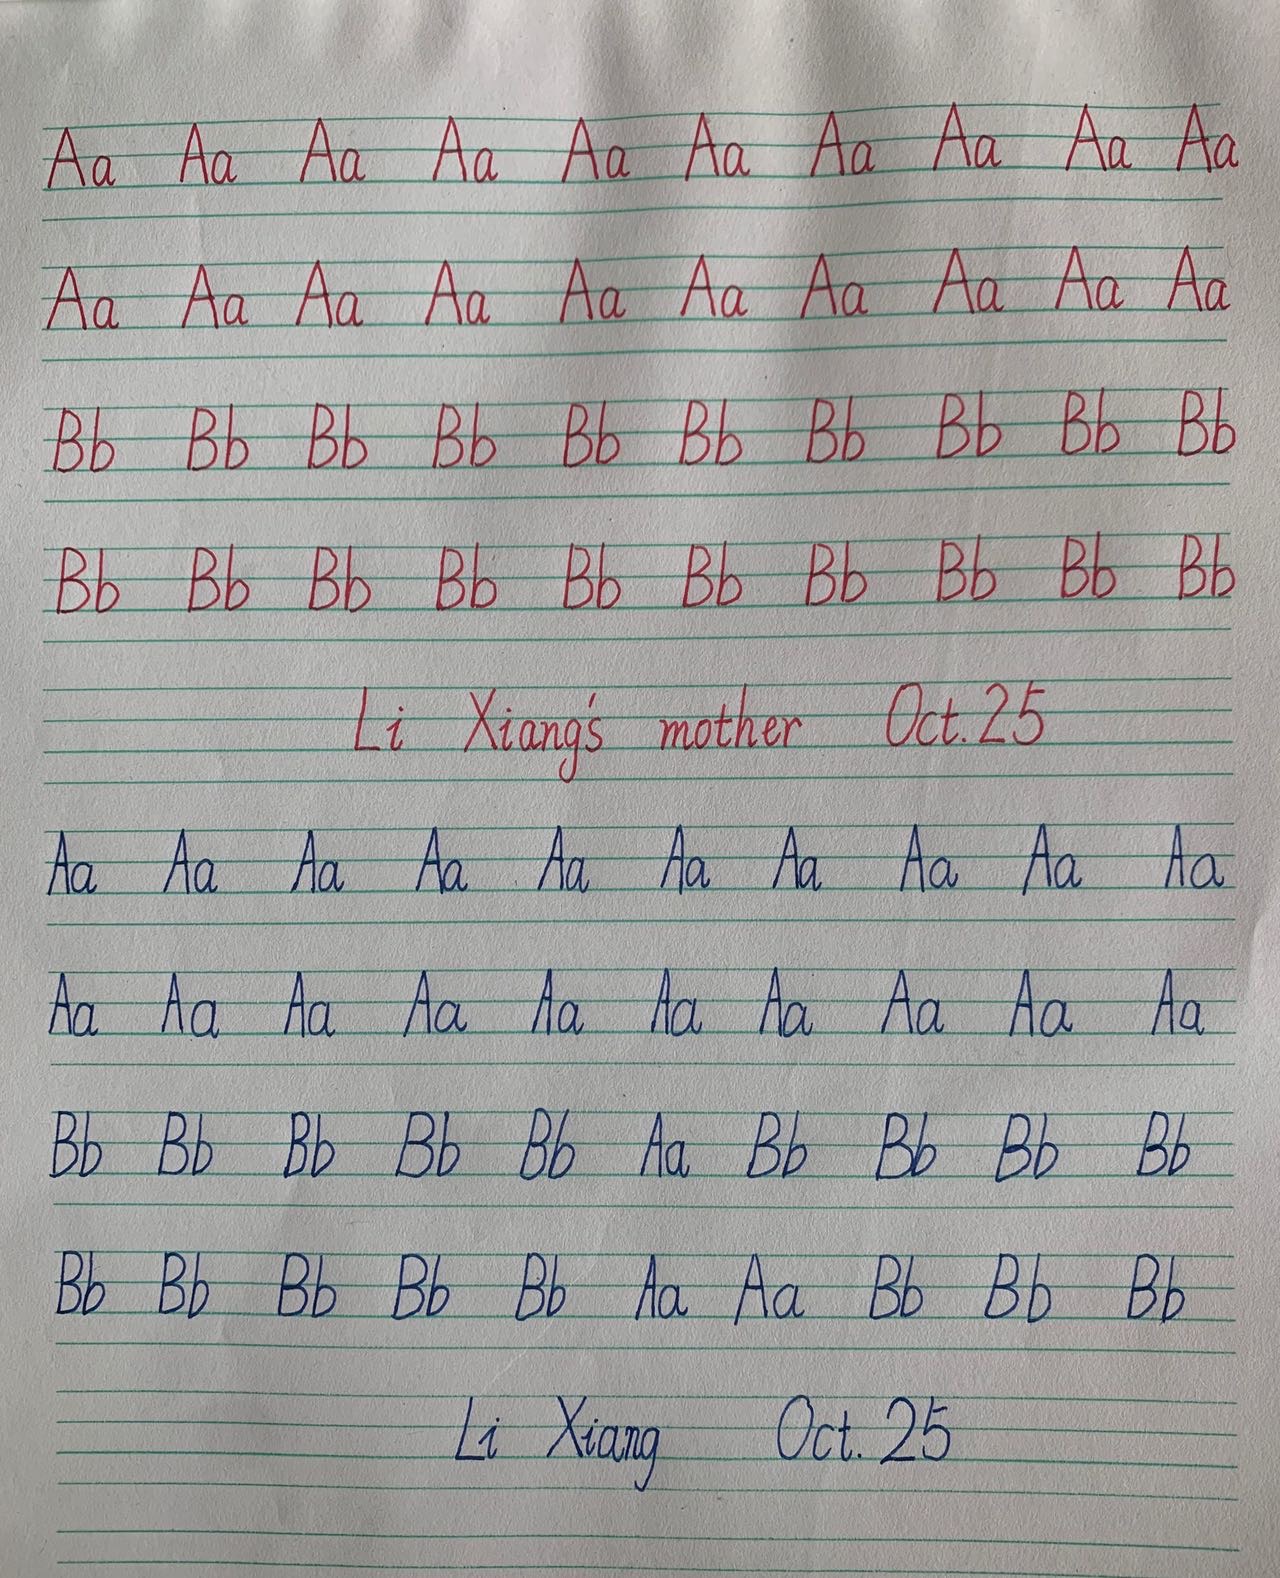 Aa Aa Aa Aa Aa Aa Aa Aa Aa Aa
Aa Aa Aa Aa Aa Aa Aa Aa Aa Aa
Bb Bb Bb Bb Bb Bb Bb Bb Bb Bb
Bb Bb Bb Bb Bb Bb Bb Bb Bb Bb
Li Xiang's mother Oct. 25
Aa Aa Aa Aa Aa Aa Aa Aa Aa Aa
Aa Aa Aa Aa Aa Aa Aa Aa Aa Aa
Bb Bb Bb Bb Bb Aa Bb Bb Bb Bb
Bb Bb Bb Bb Bb Aa Aa Bb Bb Bb
Li Xiang Oct. 25